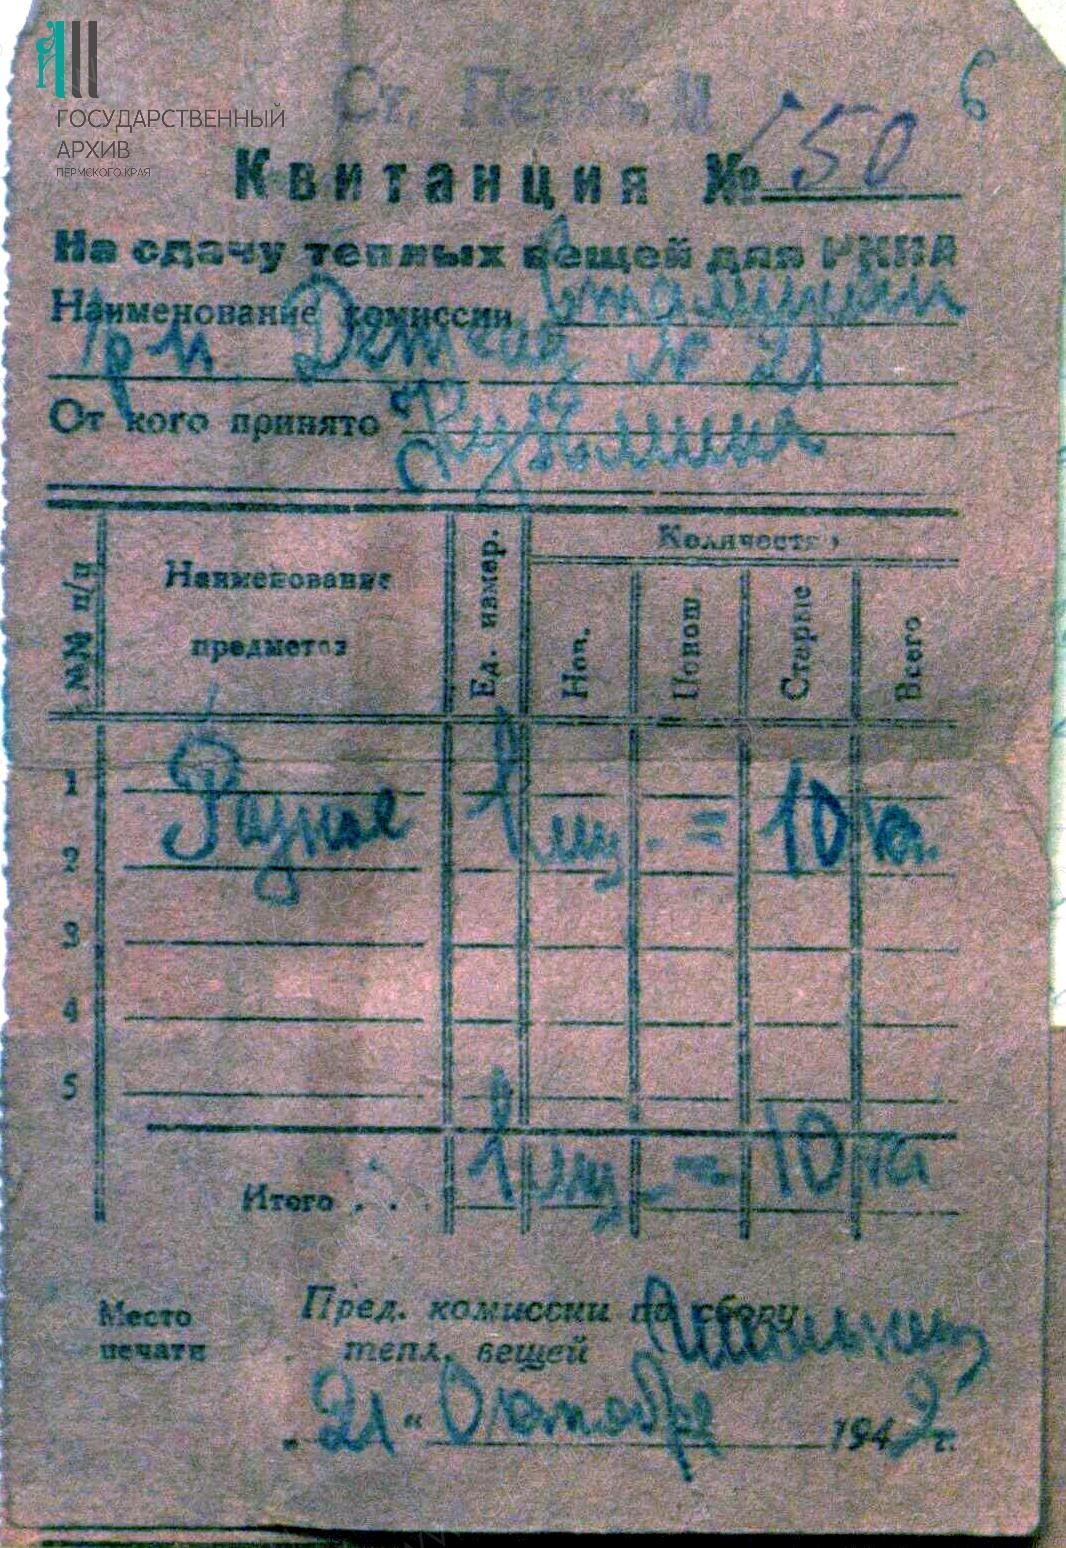 ГОСУДАРСТВЕННЫЙ
АРХИВ
ПЕРМСКОГО КРАЯ
Ст. Пермь II
6
Квитанция № 50
На сдачу теплых вещей для РККА
Наименование комиссии
при № 21
От кого принято Кузьмина
№№ п/п
Наименование
предметов
Ед. измер.
Количество
Нов.
Понош
Старые
Всего
1
2
3
4
5
1 = 10
Итого . . . 1 = 10
Место
печати
Пред. комиссии по сбору
тепл. вещей
„21“ Октября 1942 г.